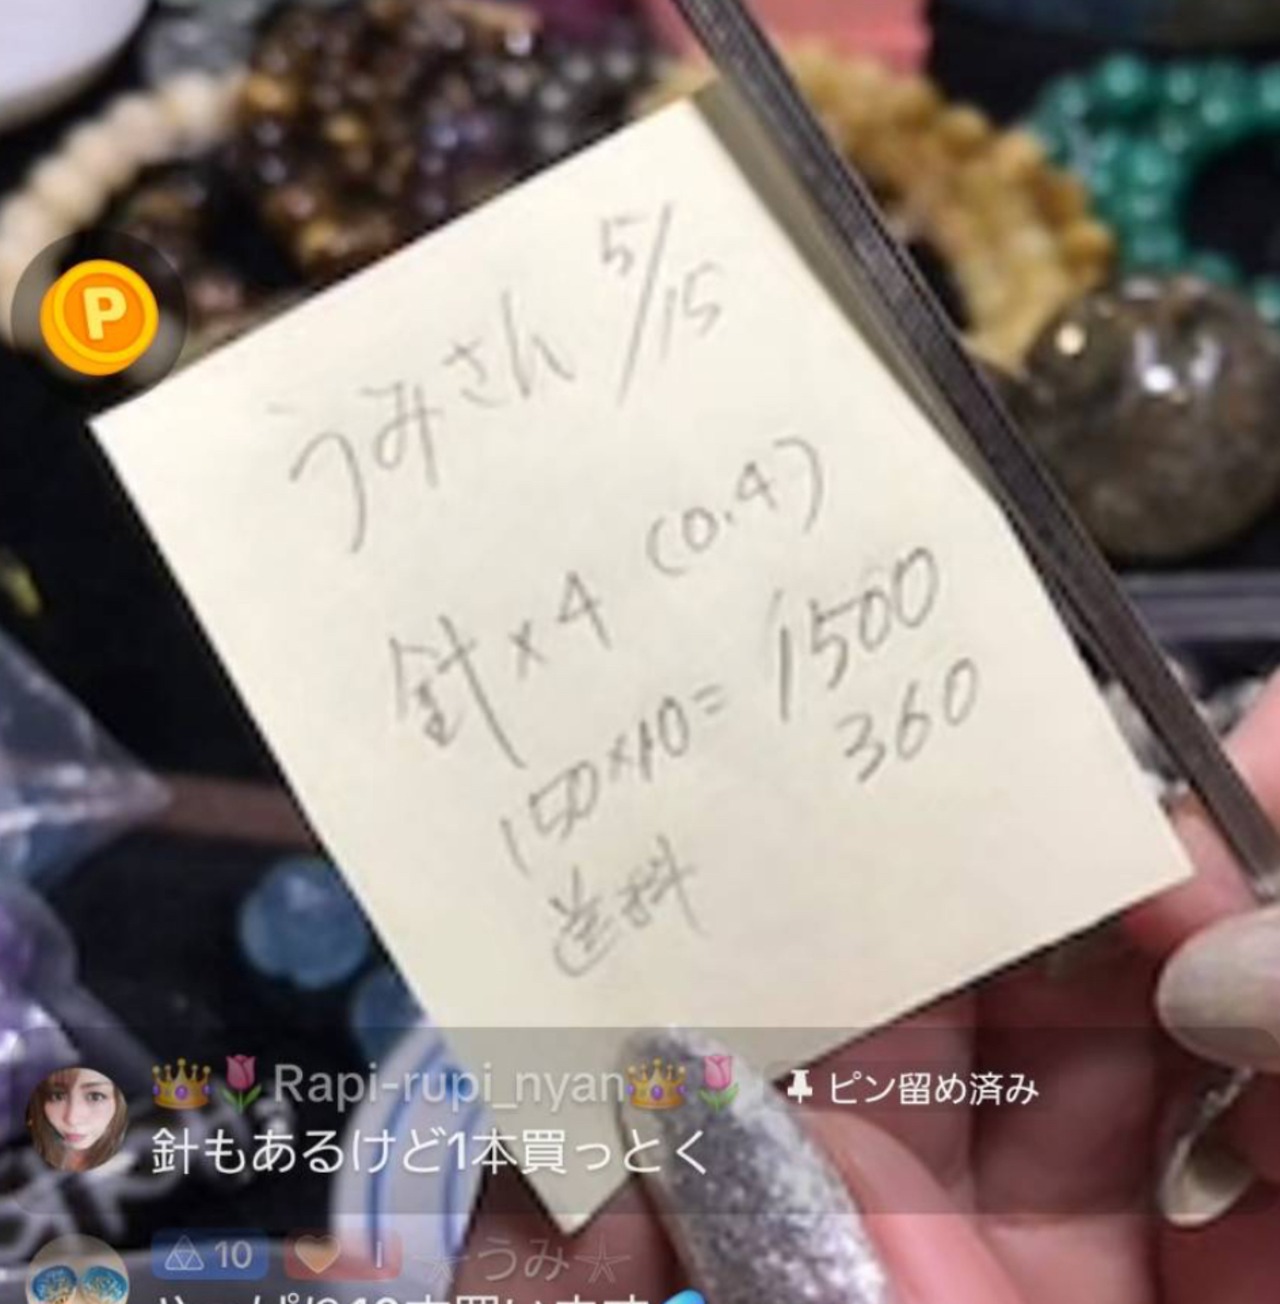 P
5/15
うみさん
針×4 (0.4)
150×10= 1500
送料 360
👑🌷Rapi-rupi_nyan👑🌷 ピン留め済み
針もあるけど1本買っとく
10 ★うみ★